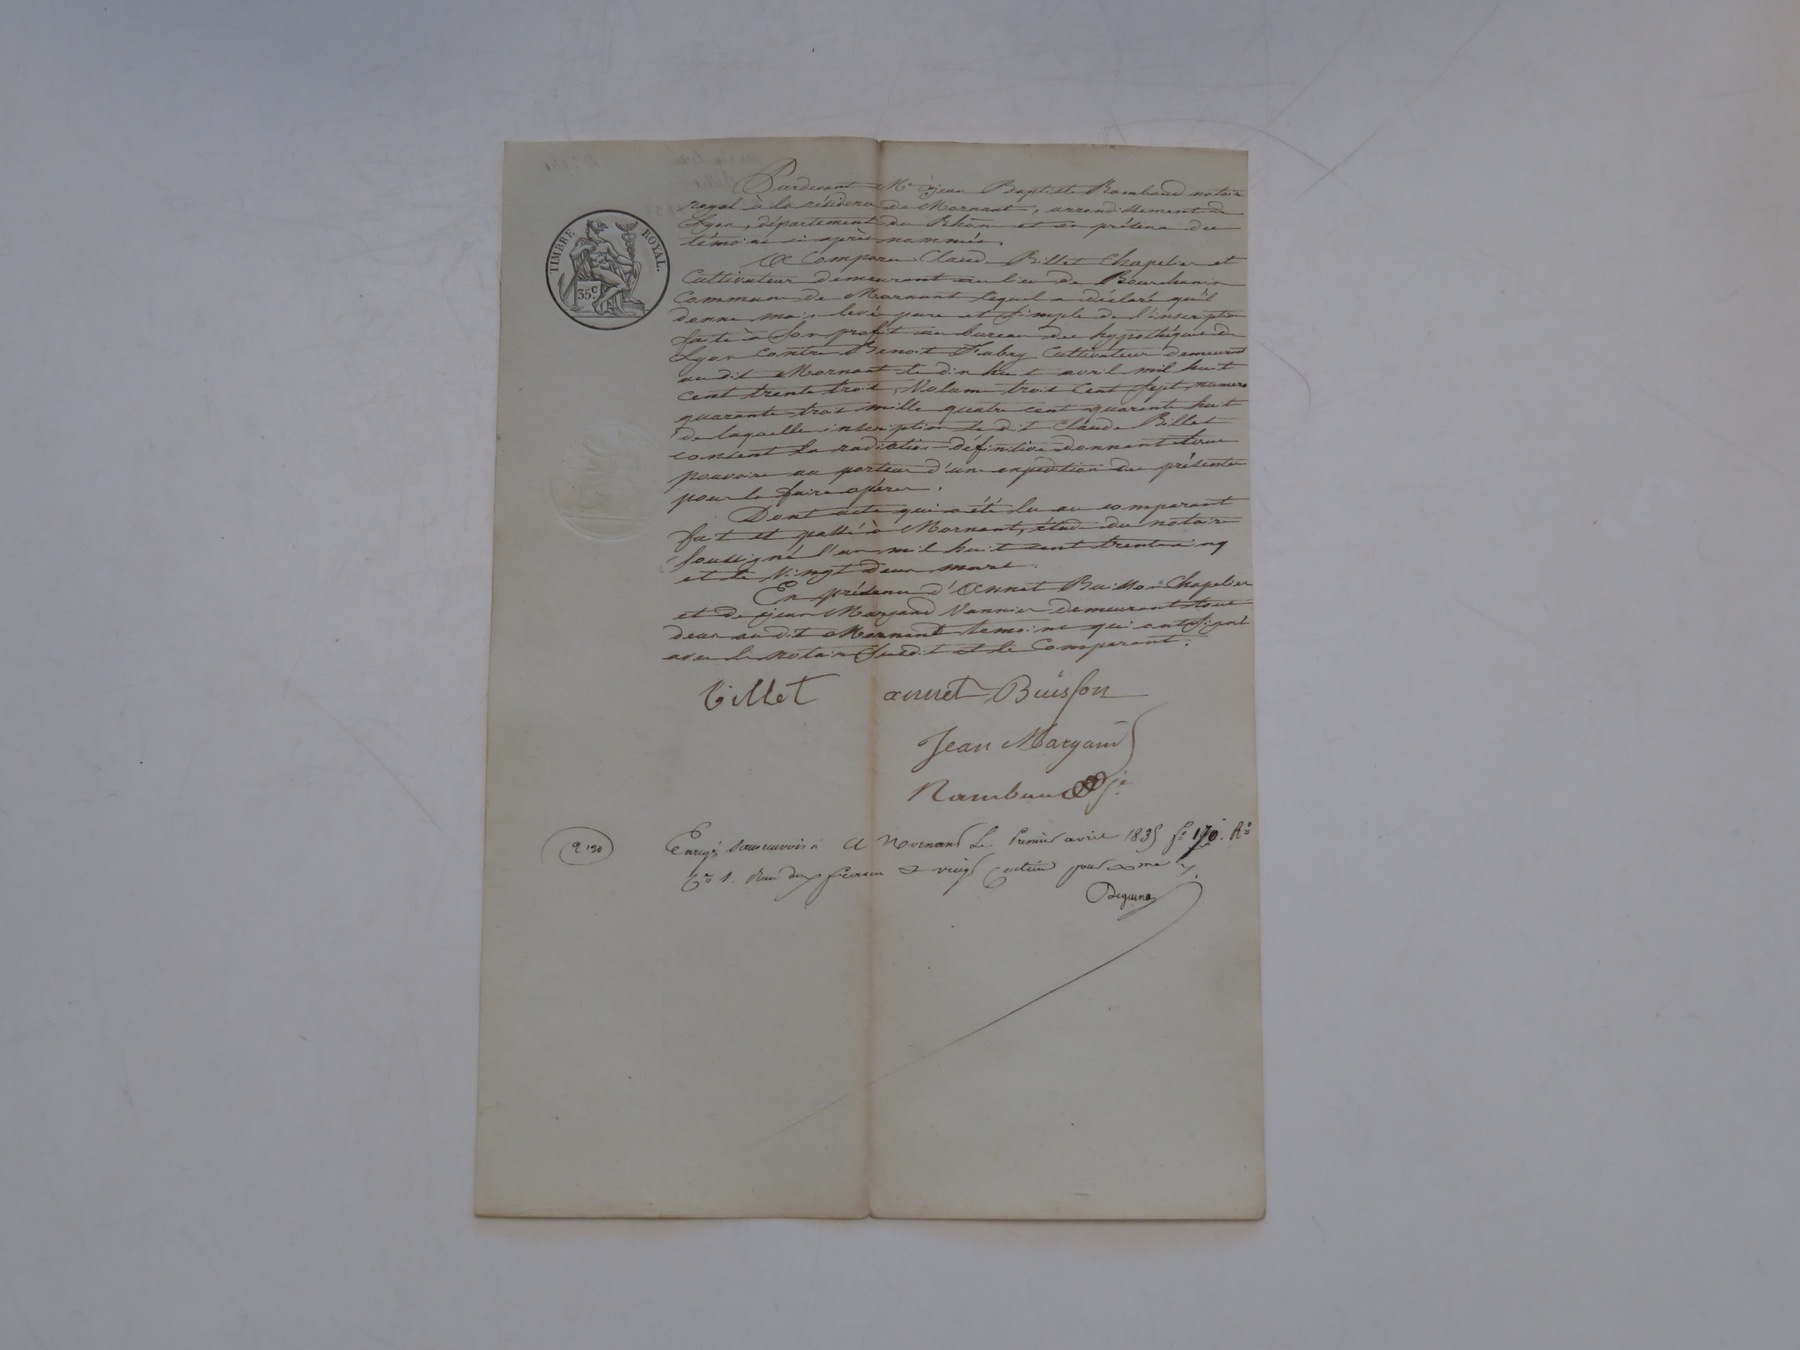 Pardevant Me Jean Baptiste Rambaud notaire
royal à la résidence de Mornant, arrondissement de
Lyon, département du Rhône et en présence des
témoins ci après nommés,
A Comparu Claude Billet Chapelier et
Cultivateur demeurant au lieu de
Commune de Mornant lequel a déclaré qu'il
donne main levée pure et simple de l'inscription
faite à son profit au bureau des hypothèques de
Lyon contre Benoit Fabry Cultivateur demeurant
audit Mornant le dix huit avril mil huit
cent trente trois, Volume trois cent sept, numero
quarante trois mille quatre cent quarante huit
de laquelle inscription le dit Claude Billet
consent la radiation définitive donnant tous
pouvoirs au porteur d'une expédition des présentes
pour la faire opérer.
Dont acte qui a été lu au comparant
fait et passé à Mornant, étude du notaire
soussigné l'an mil huit cent trente cinq
et le vingt deux mars.
En présence d'Annet Buisson Chapelier
et de Jean Margand Vannier demeurant tous
deux audit Mornant témoins qui ont signé
avec le notaire susdit et le Comparant.
billet annet Buisson
Jean Margand
Rambaud
TIMBRE ROYAL.
35c
2.20
A Mornant Le Premier avril 1835 fo 170. Ro
Co 1. Reçu deux francs et vingt Centimes